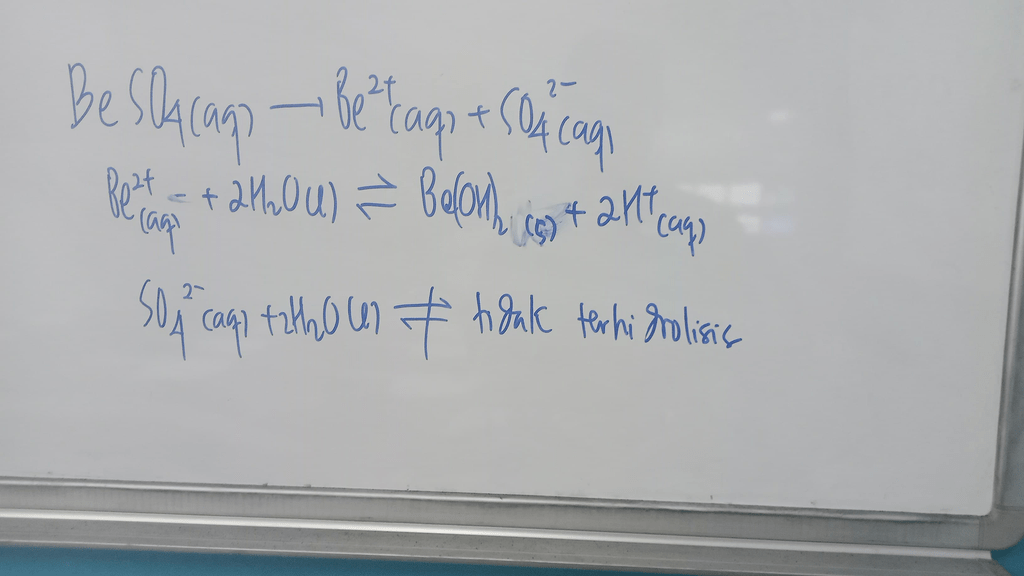 BeSO₄(aq) → Be²⁺(aq) + SO₄²⁻(aq)
Be²⁺(aq) + 2H₂O(l) ⇌ Be(OH)₂(s) + 2H⁺(aq)
SO₄²⁻(aq) + 2H₂O(l) ⇌̸ tidak terhidrolisis